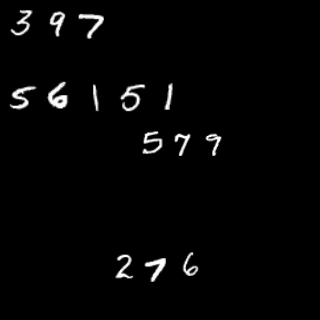 397
56151
579
276